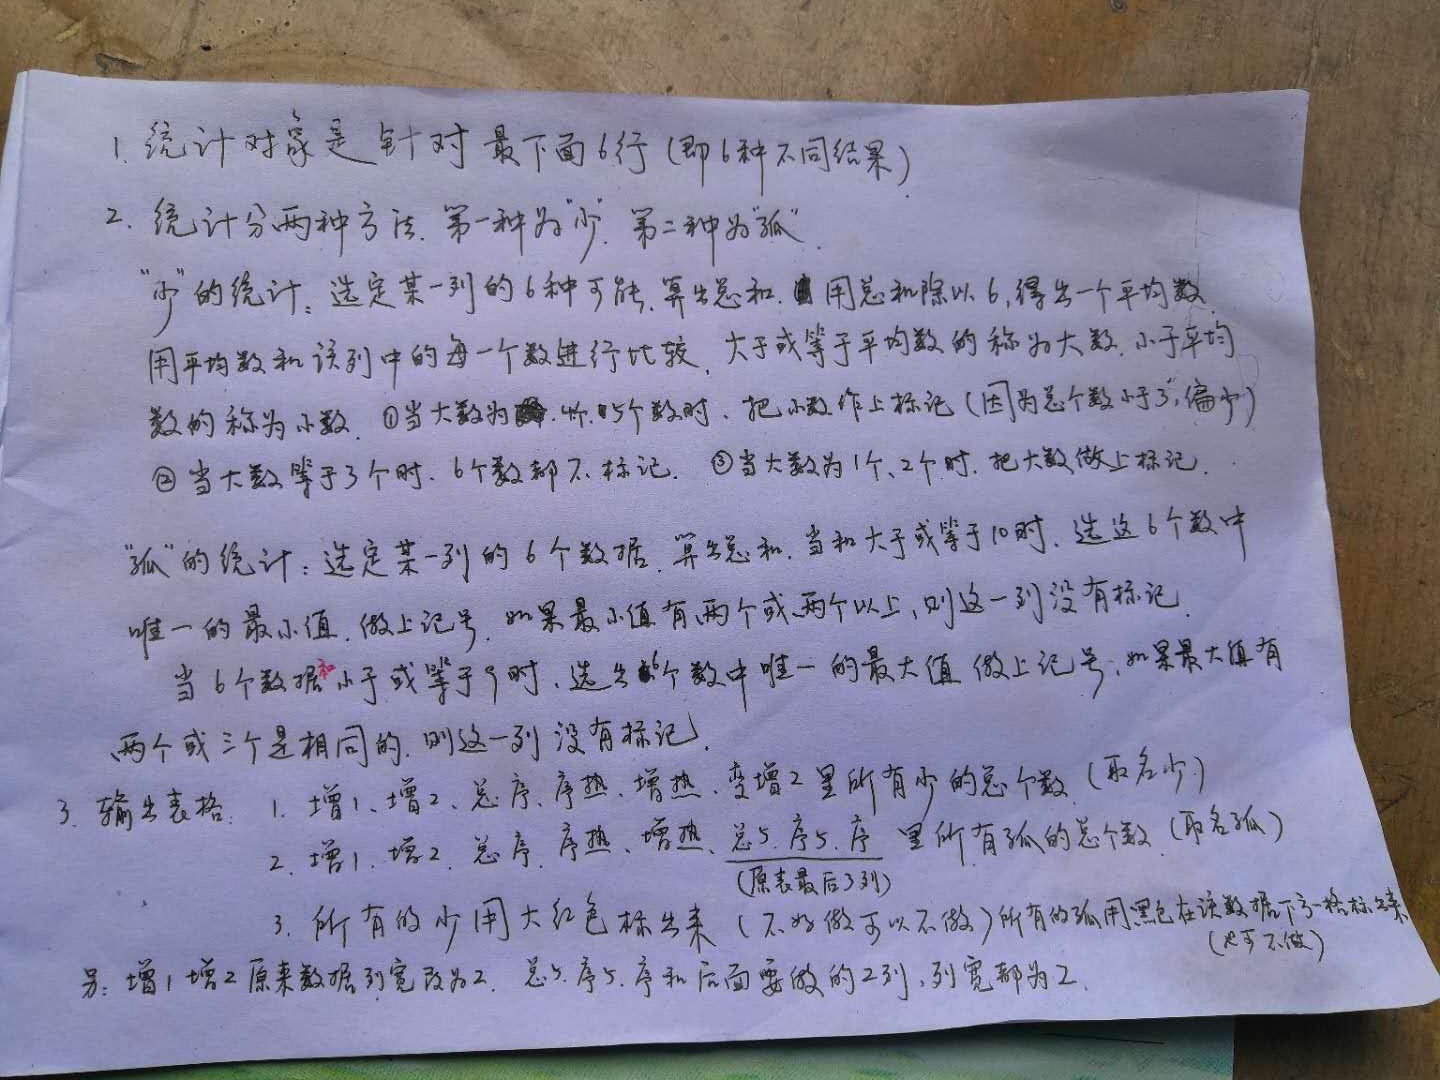 1. 统计对象是针对最下面6行(即6种不同结果)
2. 统计分两种方法.第一种为"少".第二种为"孤".
"少"的统计:选定某一列的6种可能.算出总和.用总和除以6,得出一个平均数.
用平均数和该列中的每一个数进行比较,大于或等于平均数的称为大数.小于平均
数的称为小数.①当大数为 4个.5个数时.把小数作上标记(因为总个数小于3,偏少)
②当大数等于3个时.6个数都不标记. ③当大数为1个、2个时.把大数做上标记.
"孤"的统计:选定某一列的6个数据.算出总和.当和大于或等于10时.选这6个数中
唯一的最小值.做上记号.如果最小值有两个或两个以上,则这一列没有标记.
当6个数据和小于或等于9时.选出6个数中唯一的最大值做上记号.如果最大值有
两个或三个是相同的.则这一列没有标记.
3. 输出表格. 1. 增1、增2、总序、序热、增热、变增2里所有少的总个数(取名少)
2. 增1.增2.总序.序热、增热、总5.序5.序 里所有孤的总个数.(取名孤)
(原表最后3列)
3. 所有的少用大红色标出来(不好做可以不做)所有的孤用黑色在该数据下方一格标出来
(也可不做)
另:增1增2原来数据列宽改为2. 总5.序5.序和后面要做的2列.列宽都为2.